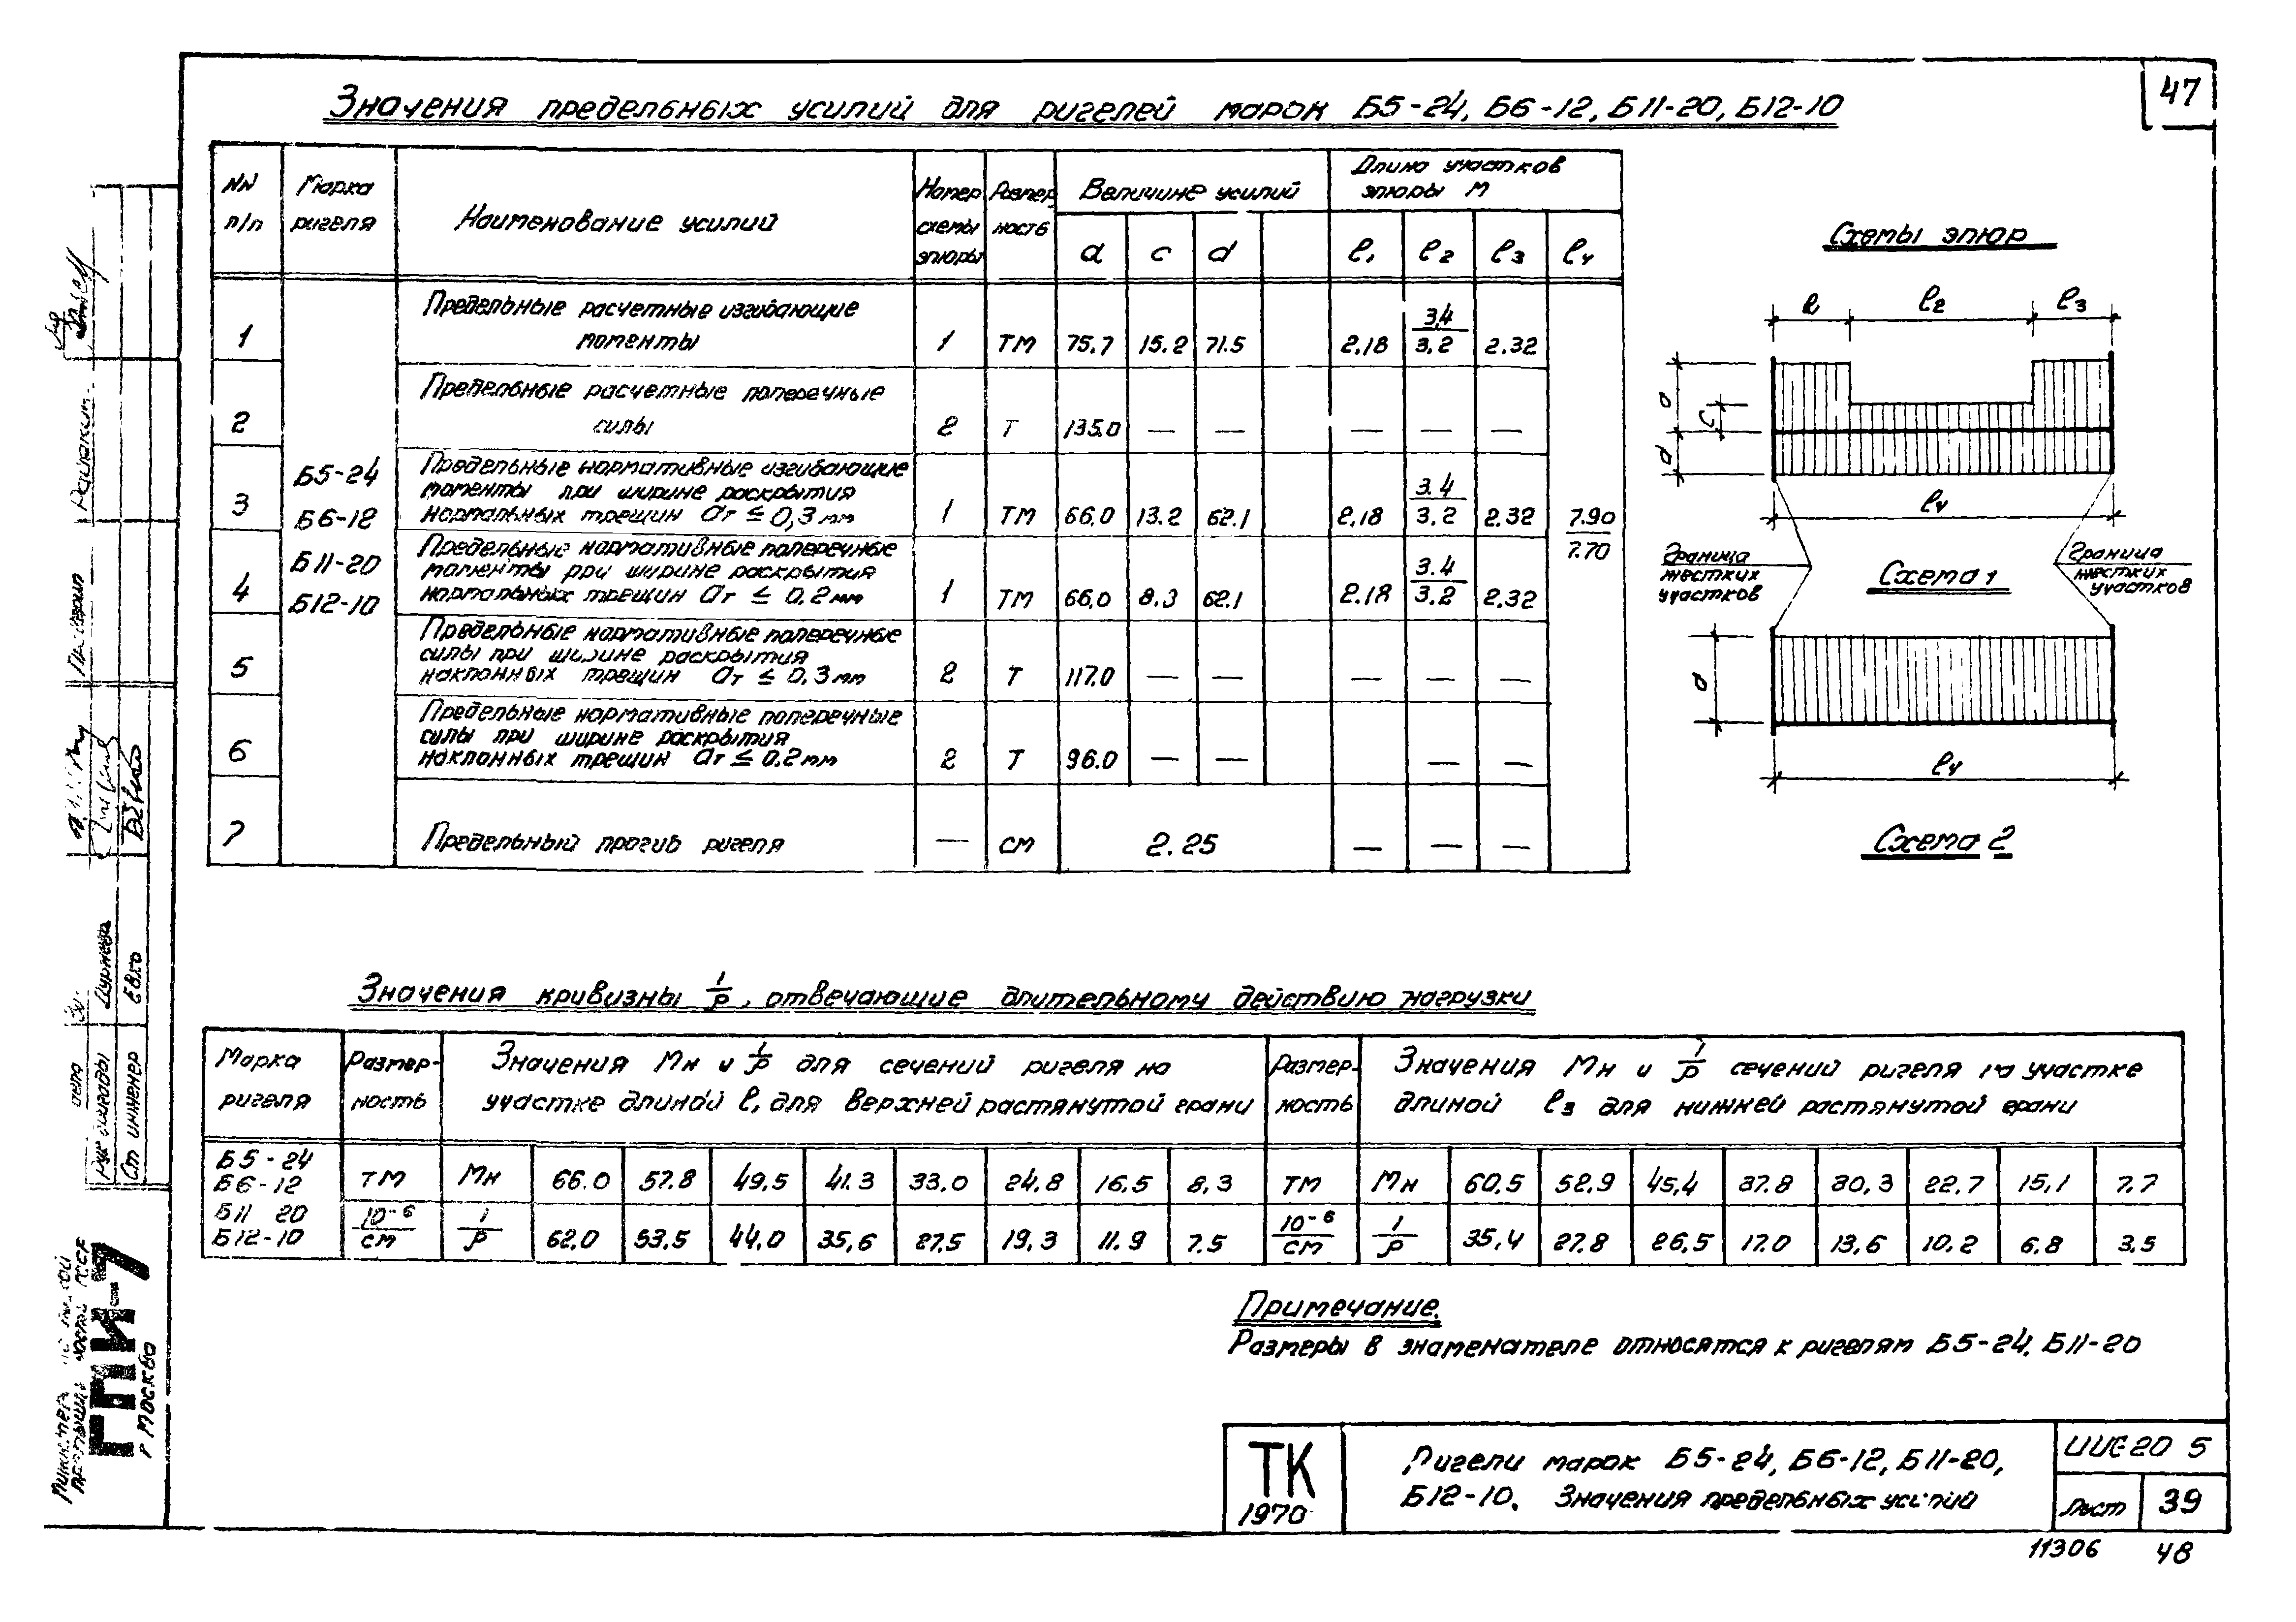 47
Значения предельных усилий для ригелей марок Б5-24, Б6-12, Б11-20, Б12-10
NN п/п
Марка ригеля
Наименование усилий
Номер схемы эпюры
Размерность
Величине усилий
Длина участков эпюры М
a c d
ℓ1 ℓ2 ℓ3 ℓ4
1 Предельные расчетные изгибающие
моменты 1 ТМ 75.7 15.2 71.5 2.18 3.4/3.2 2.32
2 Предельные расчетные поперечные
силы 2 Т 135.0 — — — — —
Б5-24
Б6-12
Б11-20
Б12-10
3 Предельные нормативные изгибающие
моменты при ширине раскрытия
нормальных трещин aт ≤ 0,3 мм 1 ТМ 66.0 13.2 62.1 2.18 3.4/3.2 2.32
7.90/7.70
4 Предельные нормативные поперечные
моменты при ширине раскрытия
нормальных трещин aт ≤ 0.2 мм 1 ТМ 66.0 8.3 62.1 2.18 3.4/3.2 2.32
5 Предельные нормативные поперечные
силы при ширине раскрытия
наклонных трещин aт ≤ 0.3 мм 2 Т 117.0 — — — — —
6 Предельные нормативные поперечные
силы при ширине раскрытия
наклонных трещин aт ≤ 0.2 мм 2 Т 96.0 — — — —
7 Предельный прогиб ригеля — см 2.25 — — —
Схемы эпюр
ℓ1 ℓ2 ℓ3
a c d
ℓ4
Граница
жестких
участков
Схема 1
Граница
жестких
участков
a
ℓ4
Схема 2
Значения кривизны 1/ρ, отвечающие длительному действию нагрузки
Марка ригеля
Размер-
ность
Значения Мн и 1/ρ для сечений ригеля на
участке длиной ℓ1 для верхней растянутой грани
Размер-
ность
Значения Мн и 1/ρ сечений ригеля на участке
длиной ℓ3 для нижней растянутой грани
Б5-24
Б6-12
Б11 20
Б12-10
ТМ Мн 66.0 57.8 49.5 41.3 33.0 24.8 16.5 8.3 ТМ Мн 60.5 52.9 45.4 37.8 30.3 22.7 15.1 7.7
10-6/см 1/ρ 62.0 53.5 44.0 35,6 27.5 19.3 11.9 7.5 10-6/см 1/ρ 35,4 27.8 26,5 17.0 13,6 10.2 6.8 3.5
Примечание.
Размеры в знаменателе относятся к ригелям Б5-24, Б11-20
ТК
1970
Ригели марок Б5-24, Б6-12, Б11-20,
Б12-10. Значения предельных усилий
ИИЕ20 5
Лист 39
11306 48
Рук бригады
Ст инженер
ГПИ-7
г Москва